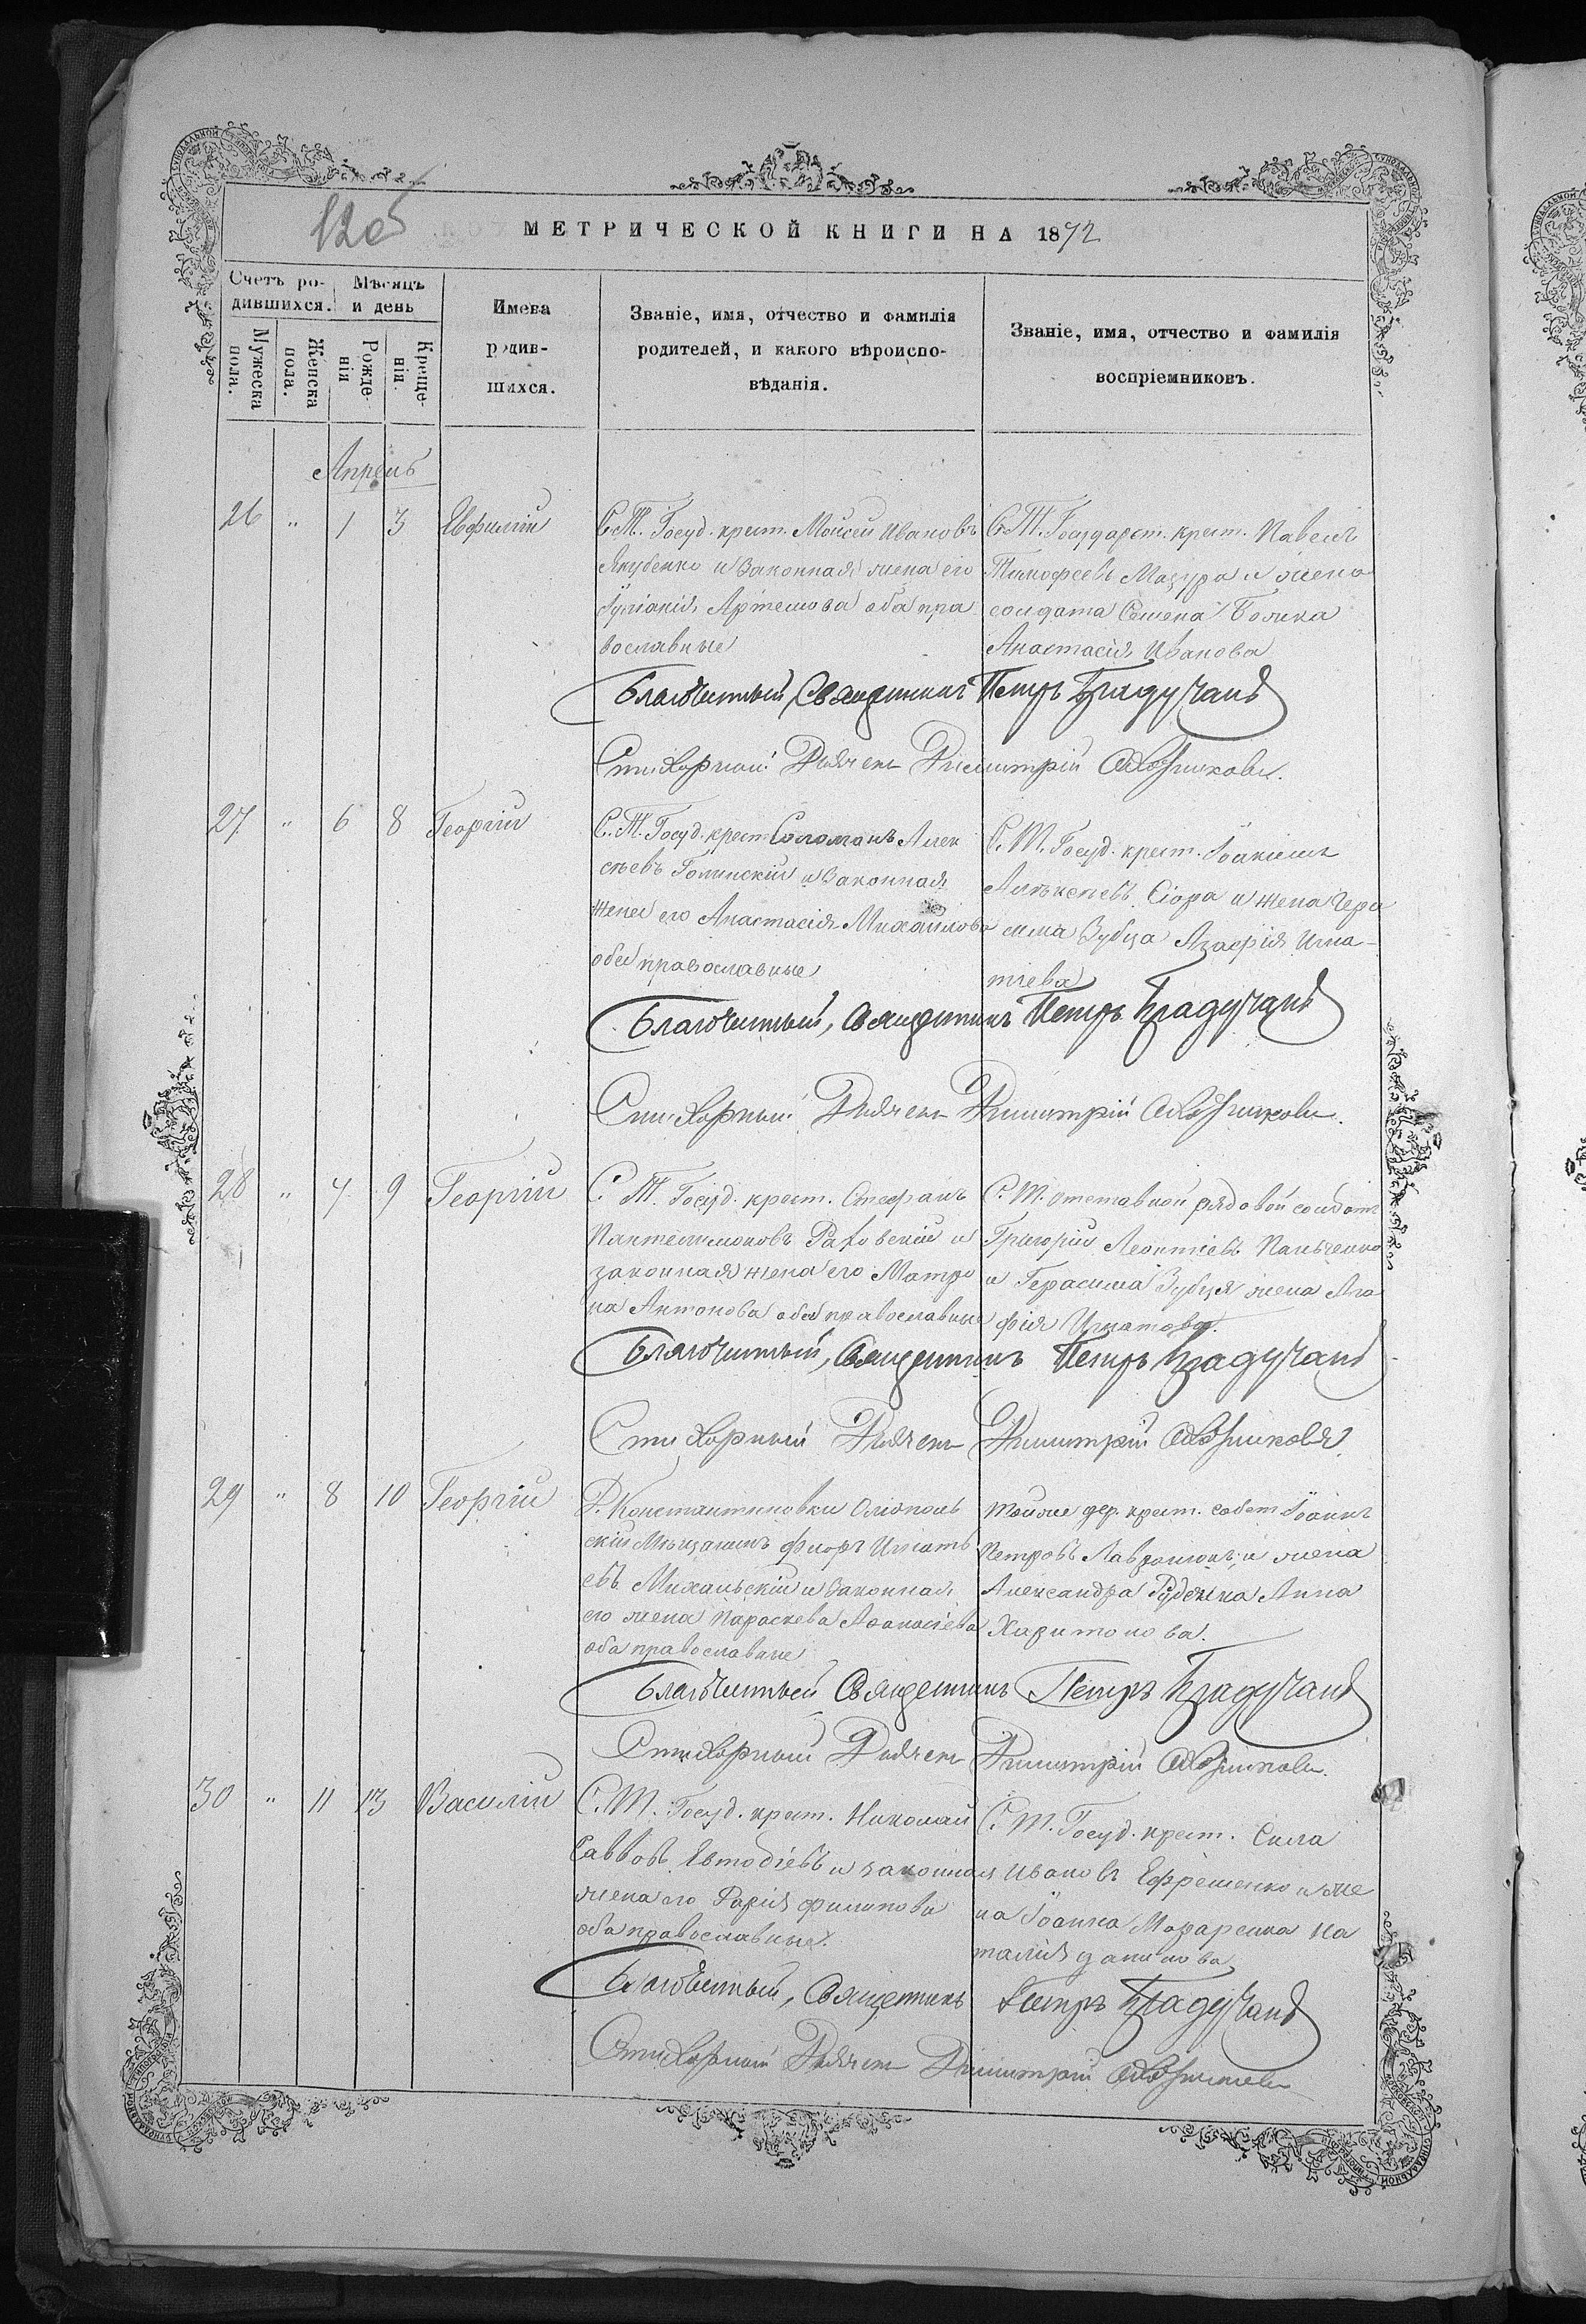 120б
МЕТРИЧЕСКОЙ КНИГИ НА 1872
Счетъ родившихся.
Мѣсяцъ и день
Мужеска пола.
Женска пола.
Рожденія
Крещенія.
Имена родившихся.
Званіе, имя, отчество и фамилія
родителей, и какого вѣроиспо-
вѣданія.
Званіе, имя, отчество и фамилія
воспріемниковъ.
Апрель
26 " 1 3 Евфимій
С.Т. Госуд. крест. Моисей Ивановъ
Якубенко и законная жена его
Іуліанія Артемова оба пра
вославные
С.Т. Государст. крест. Павелъ
Тимофеевъ Мазура и жена
солдата Семена Божка
Анастасія Иванова
Благочинный, Священникъ Петръ
Стихарный Дьячекъ Димитрій
27 " 6 8 Георгій
С.Т. Госуд. крест. Соломонъ Алек
сеевъ Голинскій и законная
жена его Анастасія Михайлова
оба православные
С.Т. Госуд. крест. Іоакимъ
Алексеевъ Сіора и жена Гера
сима Зубца Агафія Игна-
тіева
Благочинный, Священникъ Петръ
Стихарный Дьячекъ Димитрій
28 " 7 9 Георгій
С.Т. Госуд. крест. Стефанъ
Пантелимоновъ Раковскій и
законная жена его Матро
на Антонова оба православные
С.Т. отставной рядовой солдатъ
Григорій Леонтіевъ Панченко
и Герасима Зубця жена Ага
фія Игнатова.
Благочинный, Священникъ Петръ
Стихарный Дьячекъ Димитрій
29 " 8 10 Георгій
Д. Константиновки Оліополь
скій Мѣщанинъ Фиоръ Игнатъ
евъ Михальскій и законная
его жена Параскева Афанасіева
оба православные
Тойже дер. крест. собст. Іоаннъ
Петровъ Лаврінюкъ и жена
Александра Руденка Анна
Харитонова.
Благочинный Священникъ Петръ
Стихарный Дьячекъ Димитрій
30 " 11 13 Василій
С.Т. Госуд. крест. Николай
Саввовъ Евтодіевъ и законная
жена его Дарія Филипова
оба православные.
С.Т. Госуд. крест. Сила
Ивановъ Ефременко и же
на Іоанна Макаренка На
талія Данилова
Благочинный, Священникъ Петръ
Стихарный Дьячекъ Димитрій